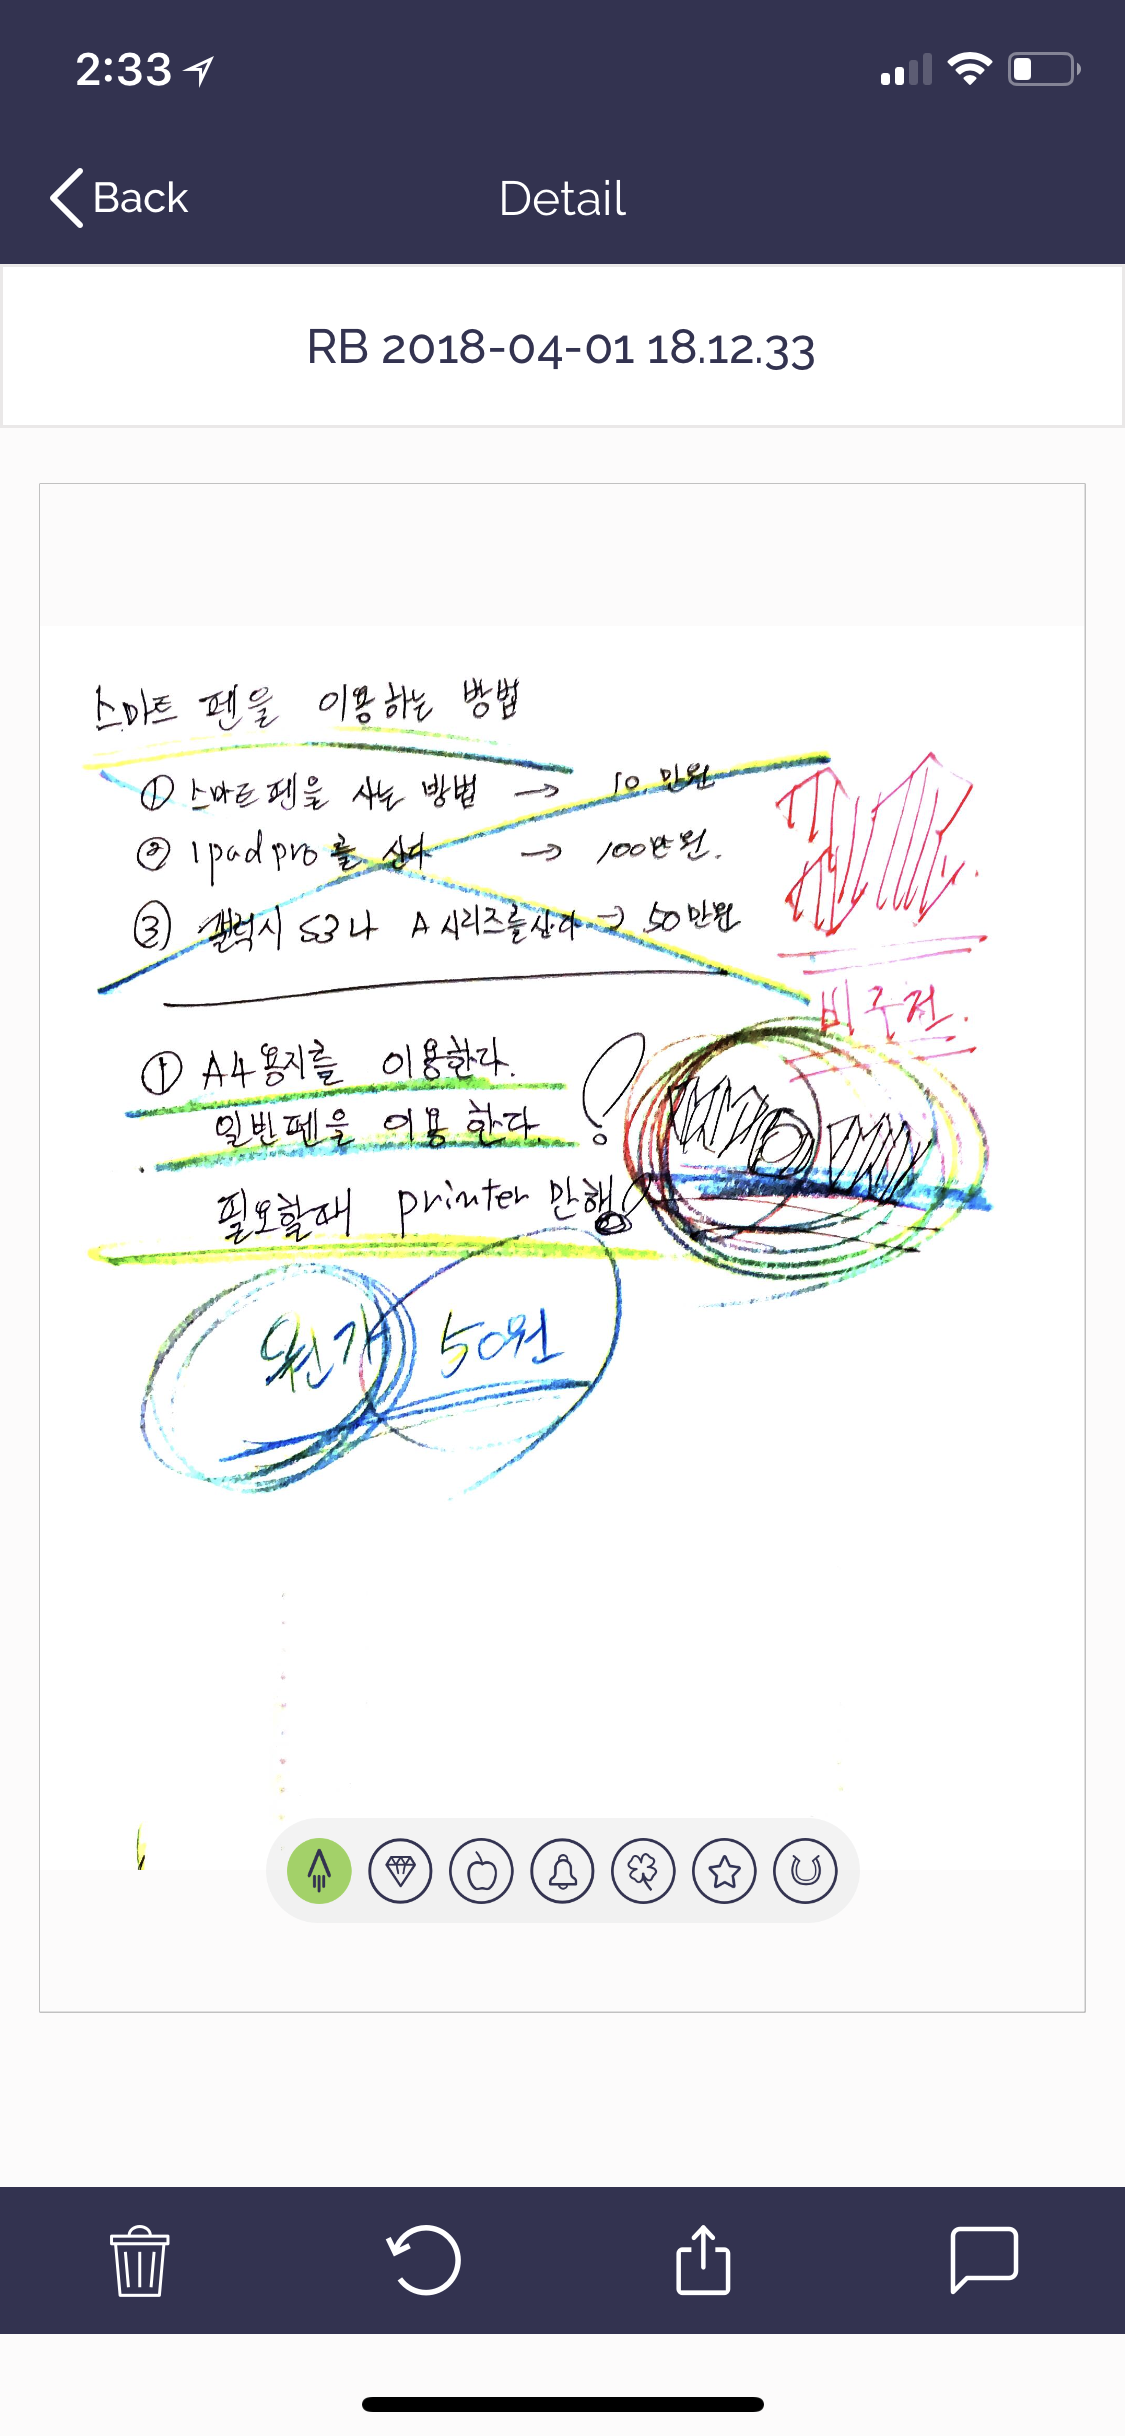 2:33
Back
Detail
RB 2018-04-01 18.12.33
스마트 펜을 이용하는 방법
① 스마트펜을 사는 방법 → 10 만원
② Ipad pro를 산다 → 100만원.
③ 갤럭시 S3나 A 시리즈를 산다 → 50만원
비주전.
① A4용지를 이용한다.
일반펜을 이용 한다.
필요할때 printer 만해
50원